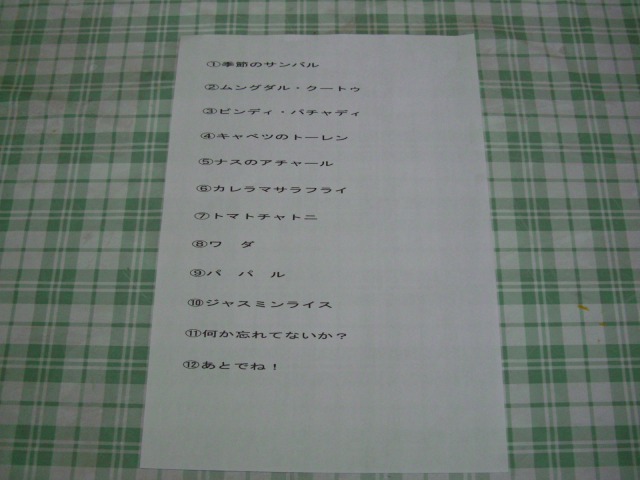 ①季節のサンバル
②ムングダル・クートゥ
③ビンディ・パチャディ
④キャベツのトーレン
⑤ナスのアチャール
⑥カレラマサラフライ
⑦トマトチャトニ
⑧ワ　ダ
⑨パ　パ　ル
⑩ジャスミンライス
⑪何か忘れてないか？
⑫あとでね！